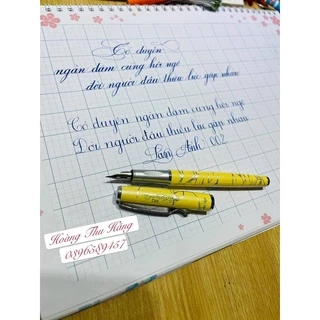 Có duyên
ngàn dặm cũng hội ngộ
đời người đâu thiếu lúc gặp nhau
Có duyên ngàn dặm cũng hội ngộ
Đời người đâu thiếu lúc gặp nhau
Lan Anh 002
Hoàng Thu Hằng
0896589457